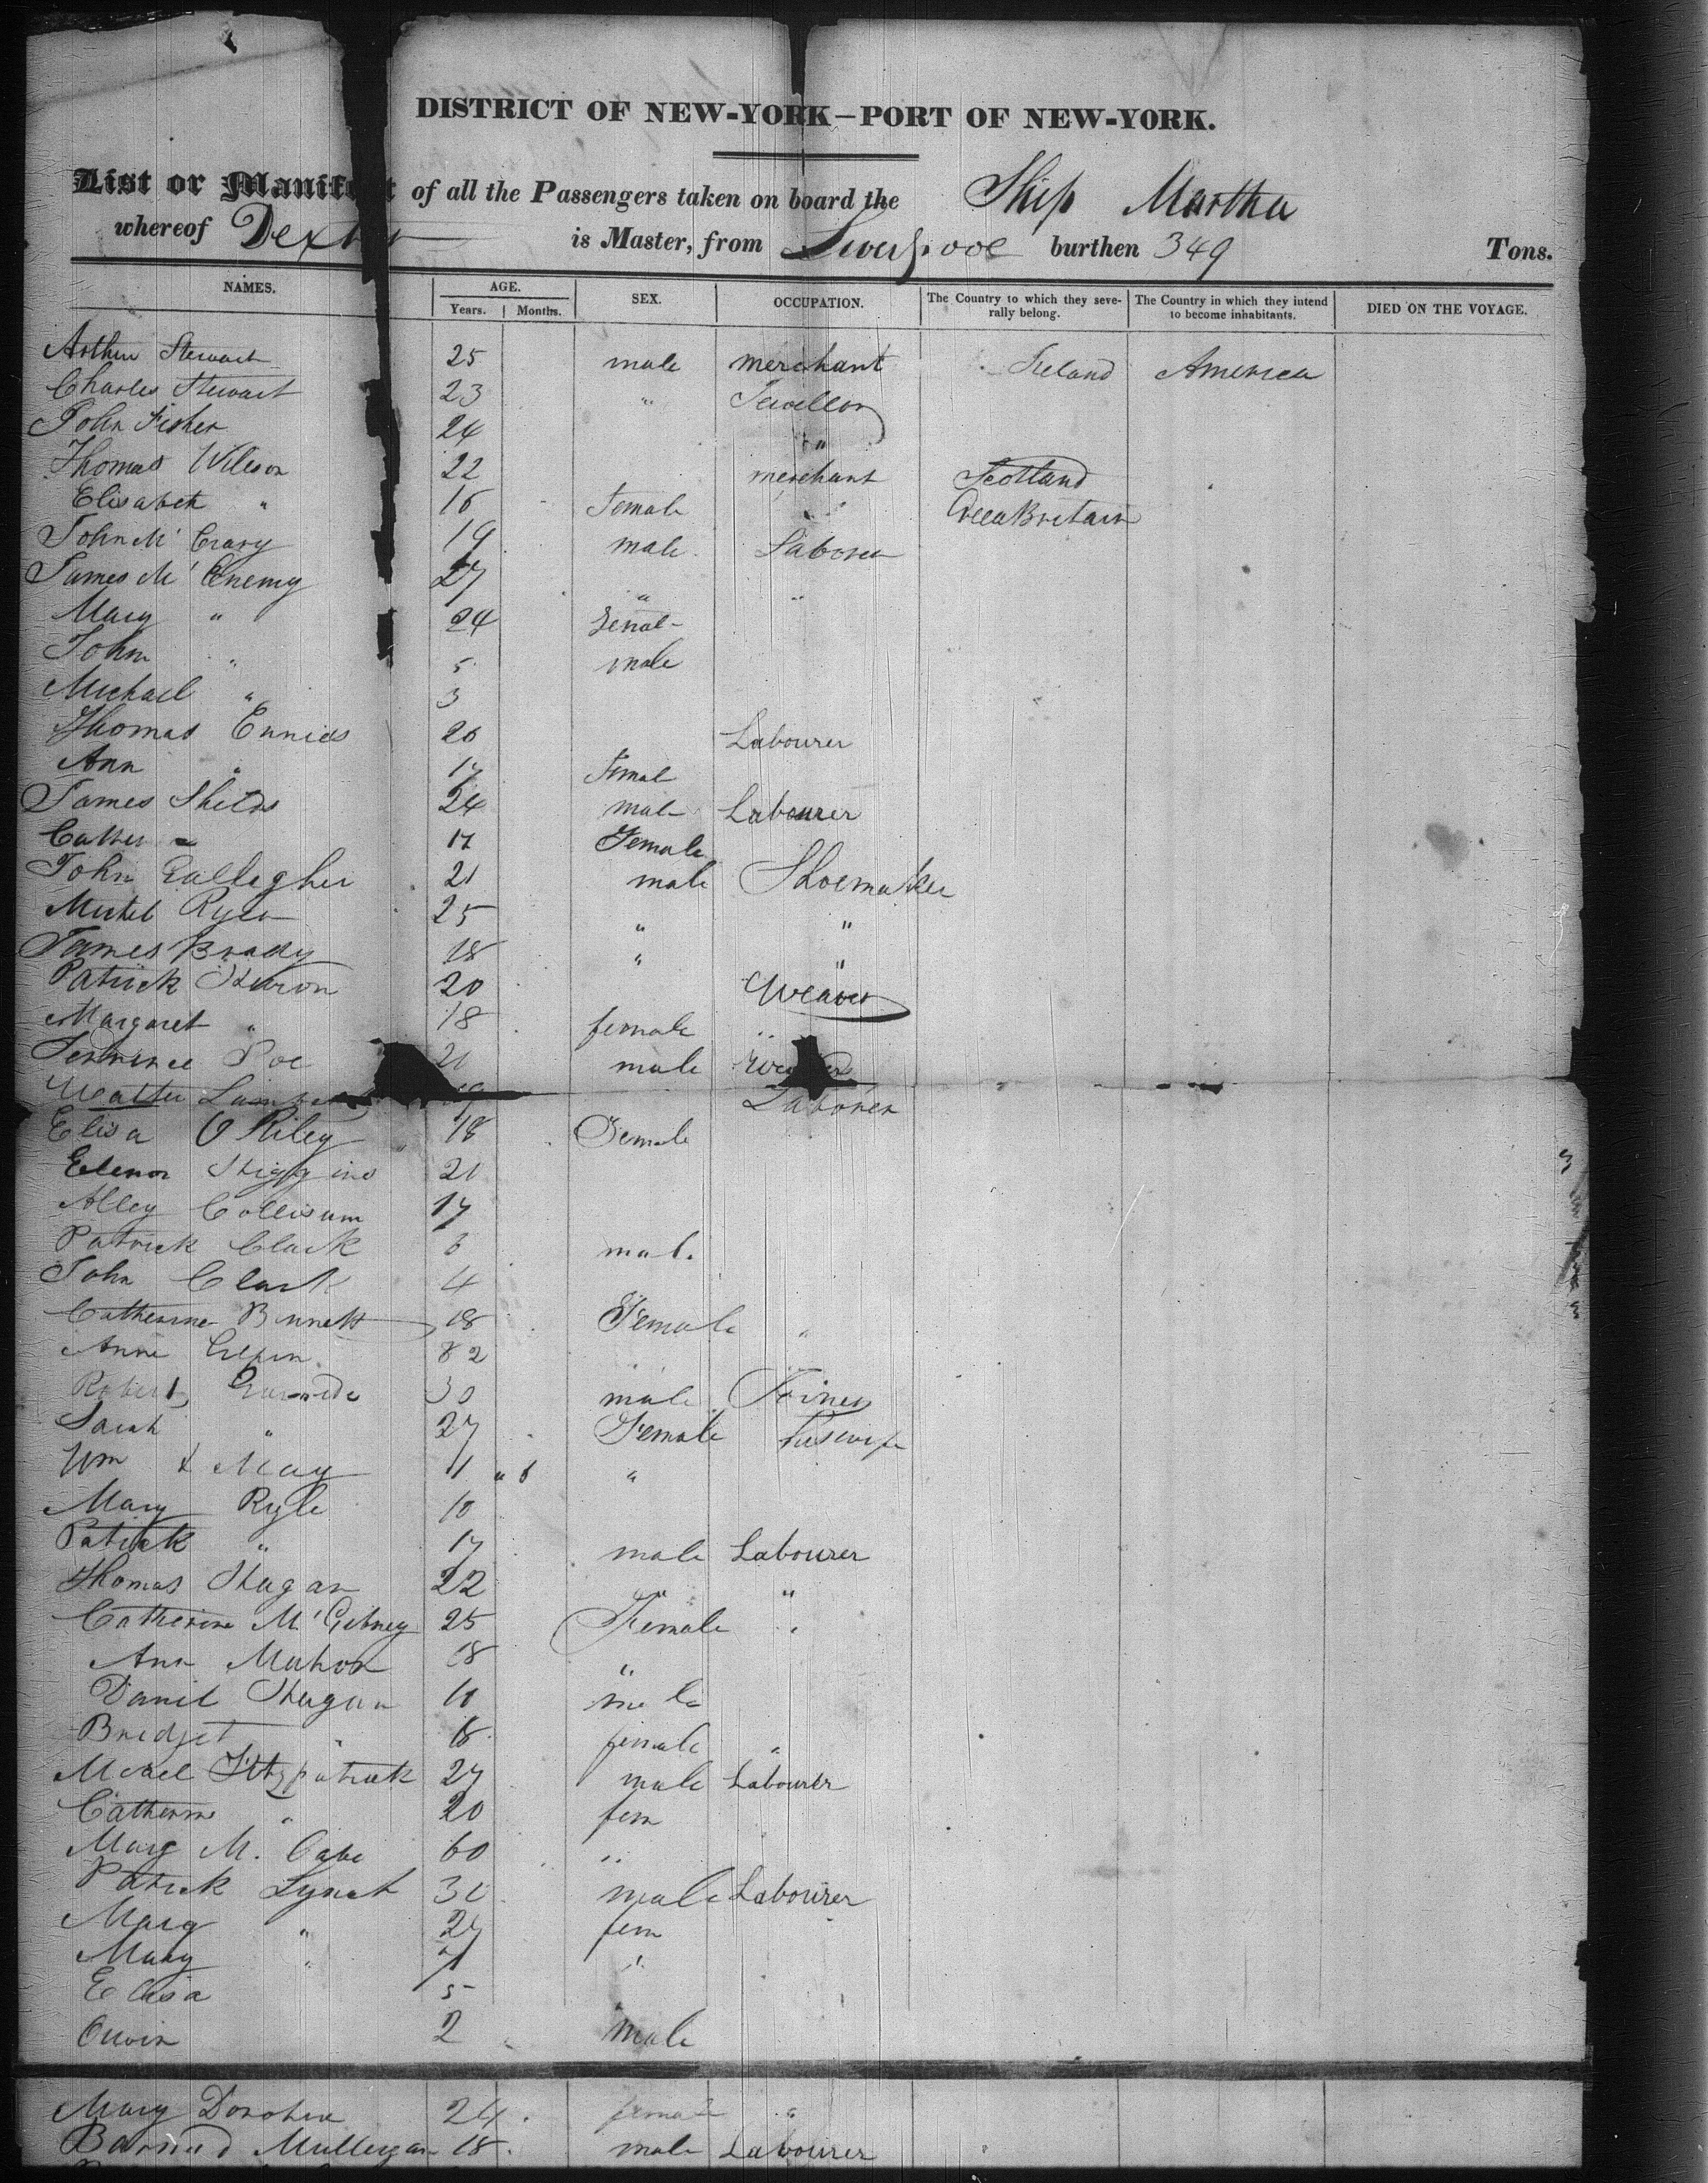 DISTRICT OF NEW-YORK—PORT OF NEW-YORK.
List or Manifest of all the Passengers taken on board the Ship Martha
whereof Dexter is Master, from Liverpool burthen 349 Tons.
NAMES. AGE. Years. Months. SEX. OCCUPATION. The Country to which they severally belong. The Country in which they intend to become inhabitants. DIED ON THE VOYAGE.
Arthur Stewart 25 male merchant Ireland America
Charles Stewart 23 " Jeweller
John Fisher 24 "
Thomas Wilson 22 merchant Scotland
Elisabeth " 16 Female Grea Britain
John Mc Crary 19 male Laborer
James Mc Enemy 27 " "
Mary " 24 Female
John " 5 male
Michael " 3
Thomas Ennies 26 Labourer
Ann " 17 Femal
James Shields 24 male Labourer
Cather " 17 Female
John Gallagher 21 male Shoemaker
Michl Ryen 25 " "
James Brady 18 " "
Patrick Heron 20 Weaver
Margaret " 18 female
Terrence Poe 20 male
Walter Laborer
Elisa O Riley 18 Female
Elenor Higgins 20
Alley Collisum 17
Patrick Clark 6 male
John Clark 4
Catherine Bennett 18 Female "
Anne
Robert 30 male Joiner
Sarah " 27 Female huswife
Wm & May "
Mary Ryle 10
Patrick " 17 male Labourer
Thomas Hagan 22 "
Catherine Mc Gibney 25 Female "
Ann Mahon 18 "
Daniel Hagan male
Bridget " 18 female "
Micael Fitzpatrick 27 male Labourer
Catherine " 20 fem
Marg M. Cabe 60 "
Patrick Lynch 30 male Labourer
Marg " 27 fem
Mary " 7 "
Elisa 5
Owin 2 male
Mary Donohue 24 female "
Barned Mullegan 18 male Labourer